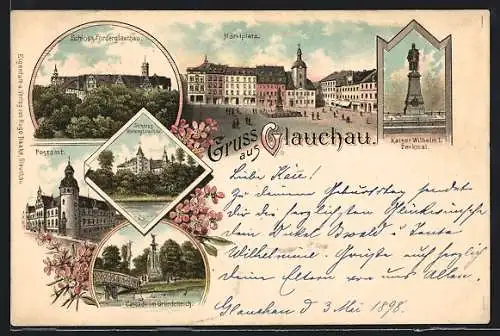 Schloss Forderglauchau.
Marktplatz.
Kaiser Wilhelm I.
Denkmal.
Schloss
Hinterglauchau
Postamt.
Gruss
aus
Glauchau.
Partie im Gründelteich.
Eigenthum u. Verlag von Hugo Glauchau.
Liebe Käte!
Zu deinem Geburtstag sendet
dir die herzlichsten Glückwünsche
dein Onkel Ewald u. Tante
Wilhelmine. Grüßte auf herzlich
deine Eltern von uns Allen.
Glauchau d 3 Mai 1898.